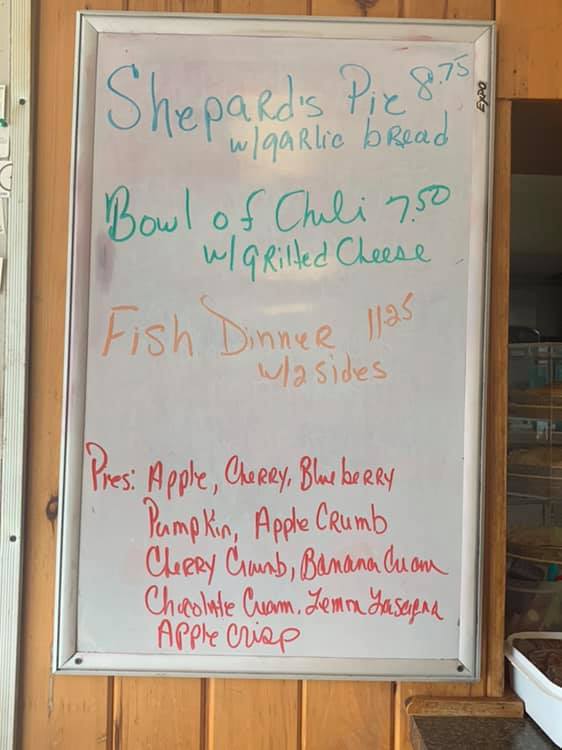 Shepard's Pie 8.75
w/garlic bread
Bowl of Chili 7.50
w/grilled Cheese
Fish Dinner 11.25
w/2 sides
Pies: Apple, Cherry, Blueberry
Pumpkin, Apple Crumb
Cherry Crumb, Banana Cream
Chocolate Cream, Lemon Lasagna
Apple Crisp
EXPO